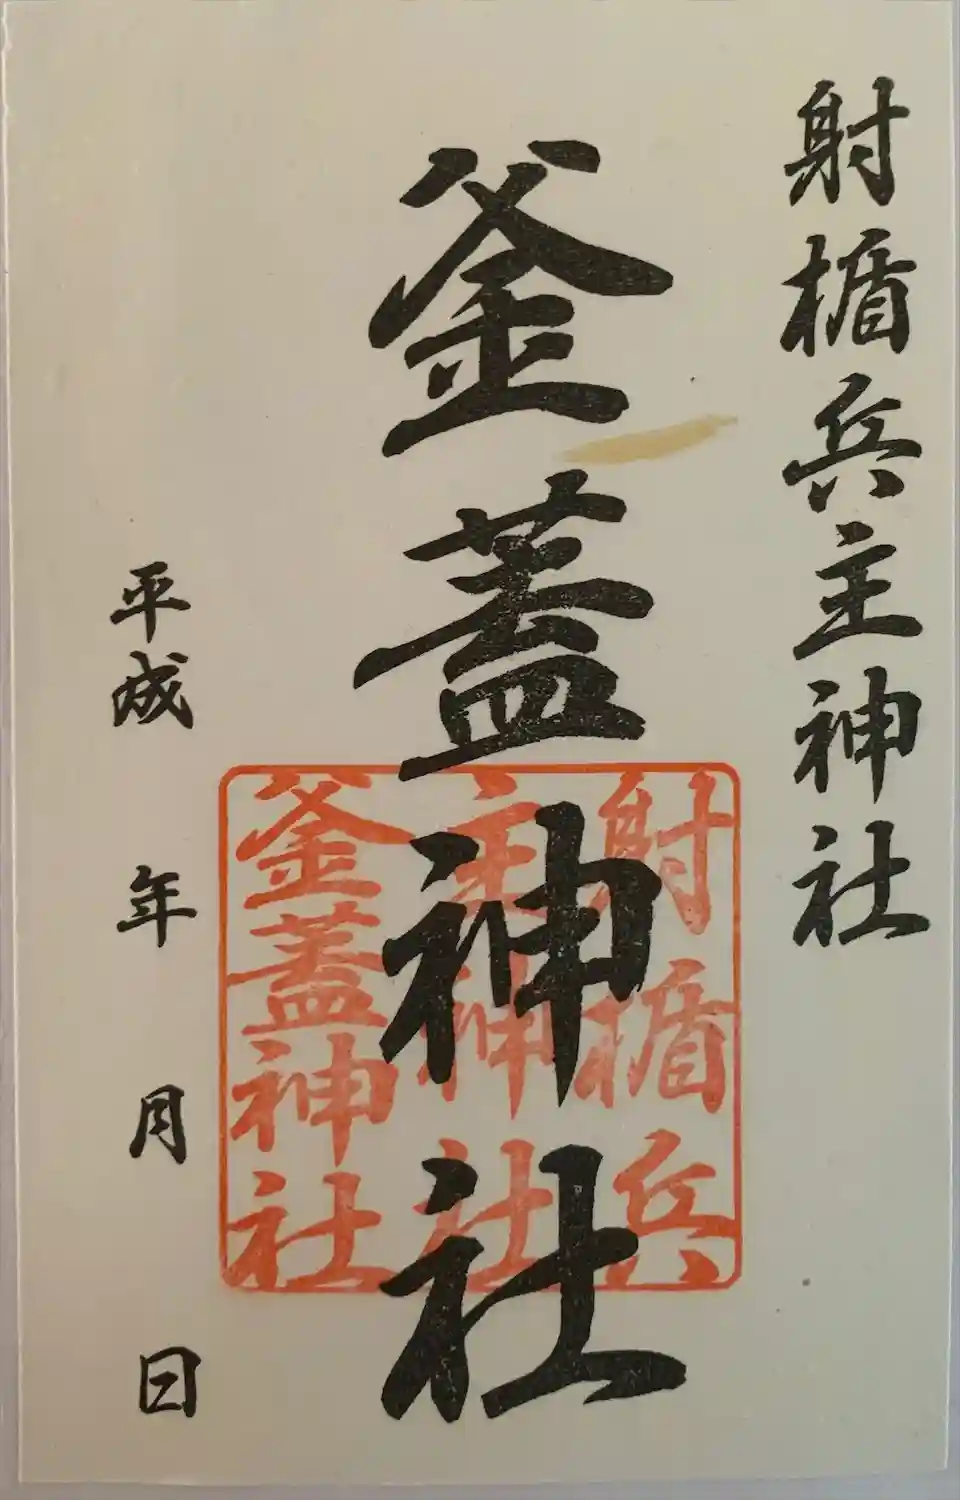 射楯兵主神社
釜蓋神社
射楯兵
主神社
釜蓋神社
平成 年 月 日